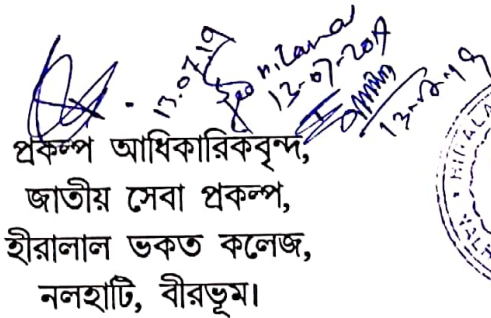 13.07.19
13-07-2019
প্রকল্প আধিকারিকবৃন্দ,
জাতীয় সেবা প্রকল্প,
হীরালাল ভকত কলেজ,
নলহাটি, বীরভূম।